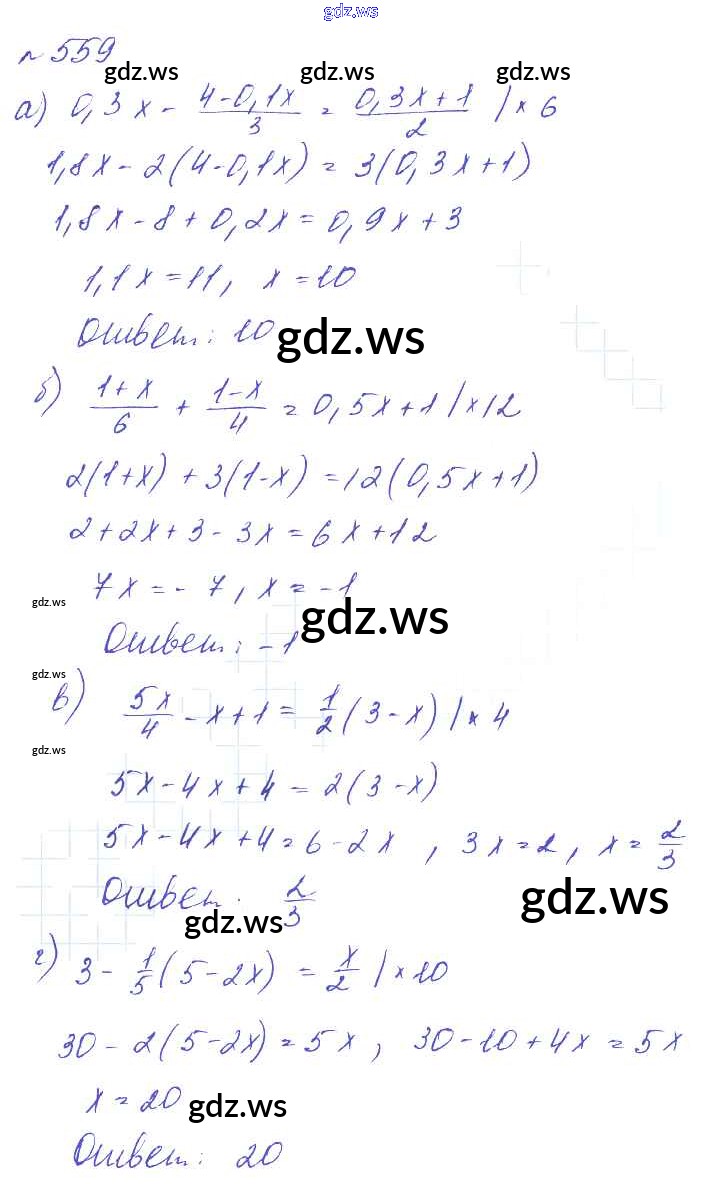 gdz.ws
№ 559
gdz.ws gdz.ws gdz.ws
а) 0,3x - (4-0,1x)/3 = (0,3x+1)/2 |× 6
1,8x - 2(4-0,1x) = 3(0,3x+1)
1,8x - 8 + 0,2x = 0,9x + 3
1,1x = 11, x = 10
Ответ: 10
gdz.ws
б) (1+x)/6 + (1-x)/4 = 0,5x+1 |×12
2(1+x) + 3(1-x) = 12(0,5x+1)
2+2x+3-3x = 6x+12
7x = -7, x = -1
gdz.ws
gdz.ws
Ответ: -1
gdz.ws
в) 5x/4 - x+1 = 1/2(3-x) |× 4
gdz.ws
5x-4x+4 = 2(3-x)
5x-4x+4=6-2x, 3x=2, x=2/3
Ответ: 2/3
gdz.ws
gdz.ws
г) 3 - 1/5(5-2x) = x/2 |×10
30-2(5-2x)=5x, 30-10+4x=5x
x=20
gdz.ws
Ответ: 20